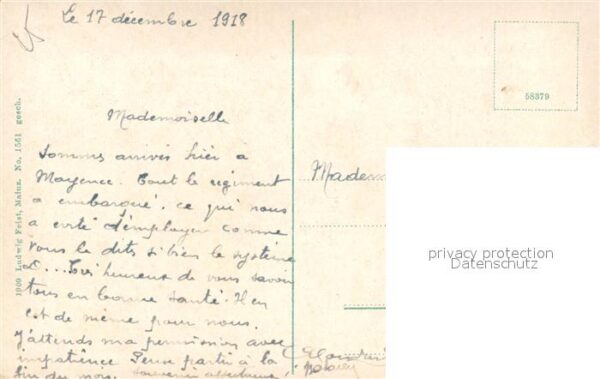 Le 17 décembre 1918
Mademoiselle
Sommes arrivés hier à
Mayence. Tout le régiment
a embarqué, ce qui nous
a évité d'employer comme
vous le dites si bien le système
D... Très heureux de vous savoir
tous en bonne santé. Il en
est de même pour nous.
J'attends ma permission avec
impatience Pense partir à la
fin du mois.
1906 Ludwig Feist, Mainz. No. 1561 gesch.
58379
Madem
privacy protection
Datenschutz